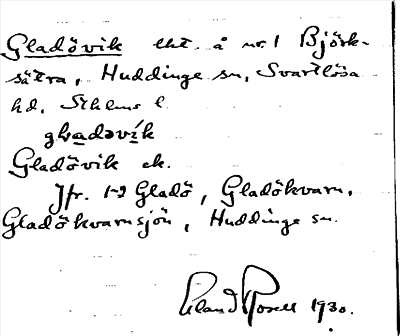 Gladövik lht. å nr. 1 Björk-
sätra, Huddinge sn, Svartlösa
hd, Sthlms l
gladəvik
Gladövik ek.
Jfr. 1-2 Gladö, Gladökvarn,
Gladökvarnsjön, Huddinge sn.
Erland Rosell 1930.